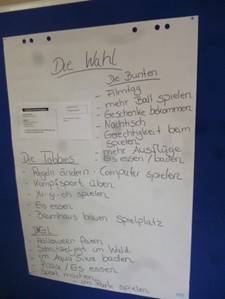 Die Wahl
Die Bunten
- Filmtag
- mehr Ball spielen
- Geschenke bekommen
- Nachtisch
- Gerechtigkeit beim spielen
- mehr Ausflüge
- Eis essen / baden
Die Tobbies
- Regeln ändern - Computer spielen
- Kampfsport üben
- Yu-gi-oh spielen
- Eis essen
- Baumhaus bauen Spielplatz
- Halloween feiern
- im Wald
- im Aqua baden
- Pizza / Eis essen
- Sport machen
- im Park spielen